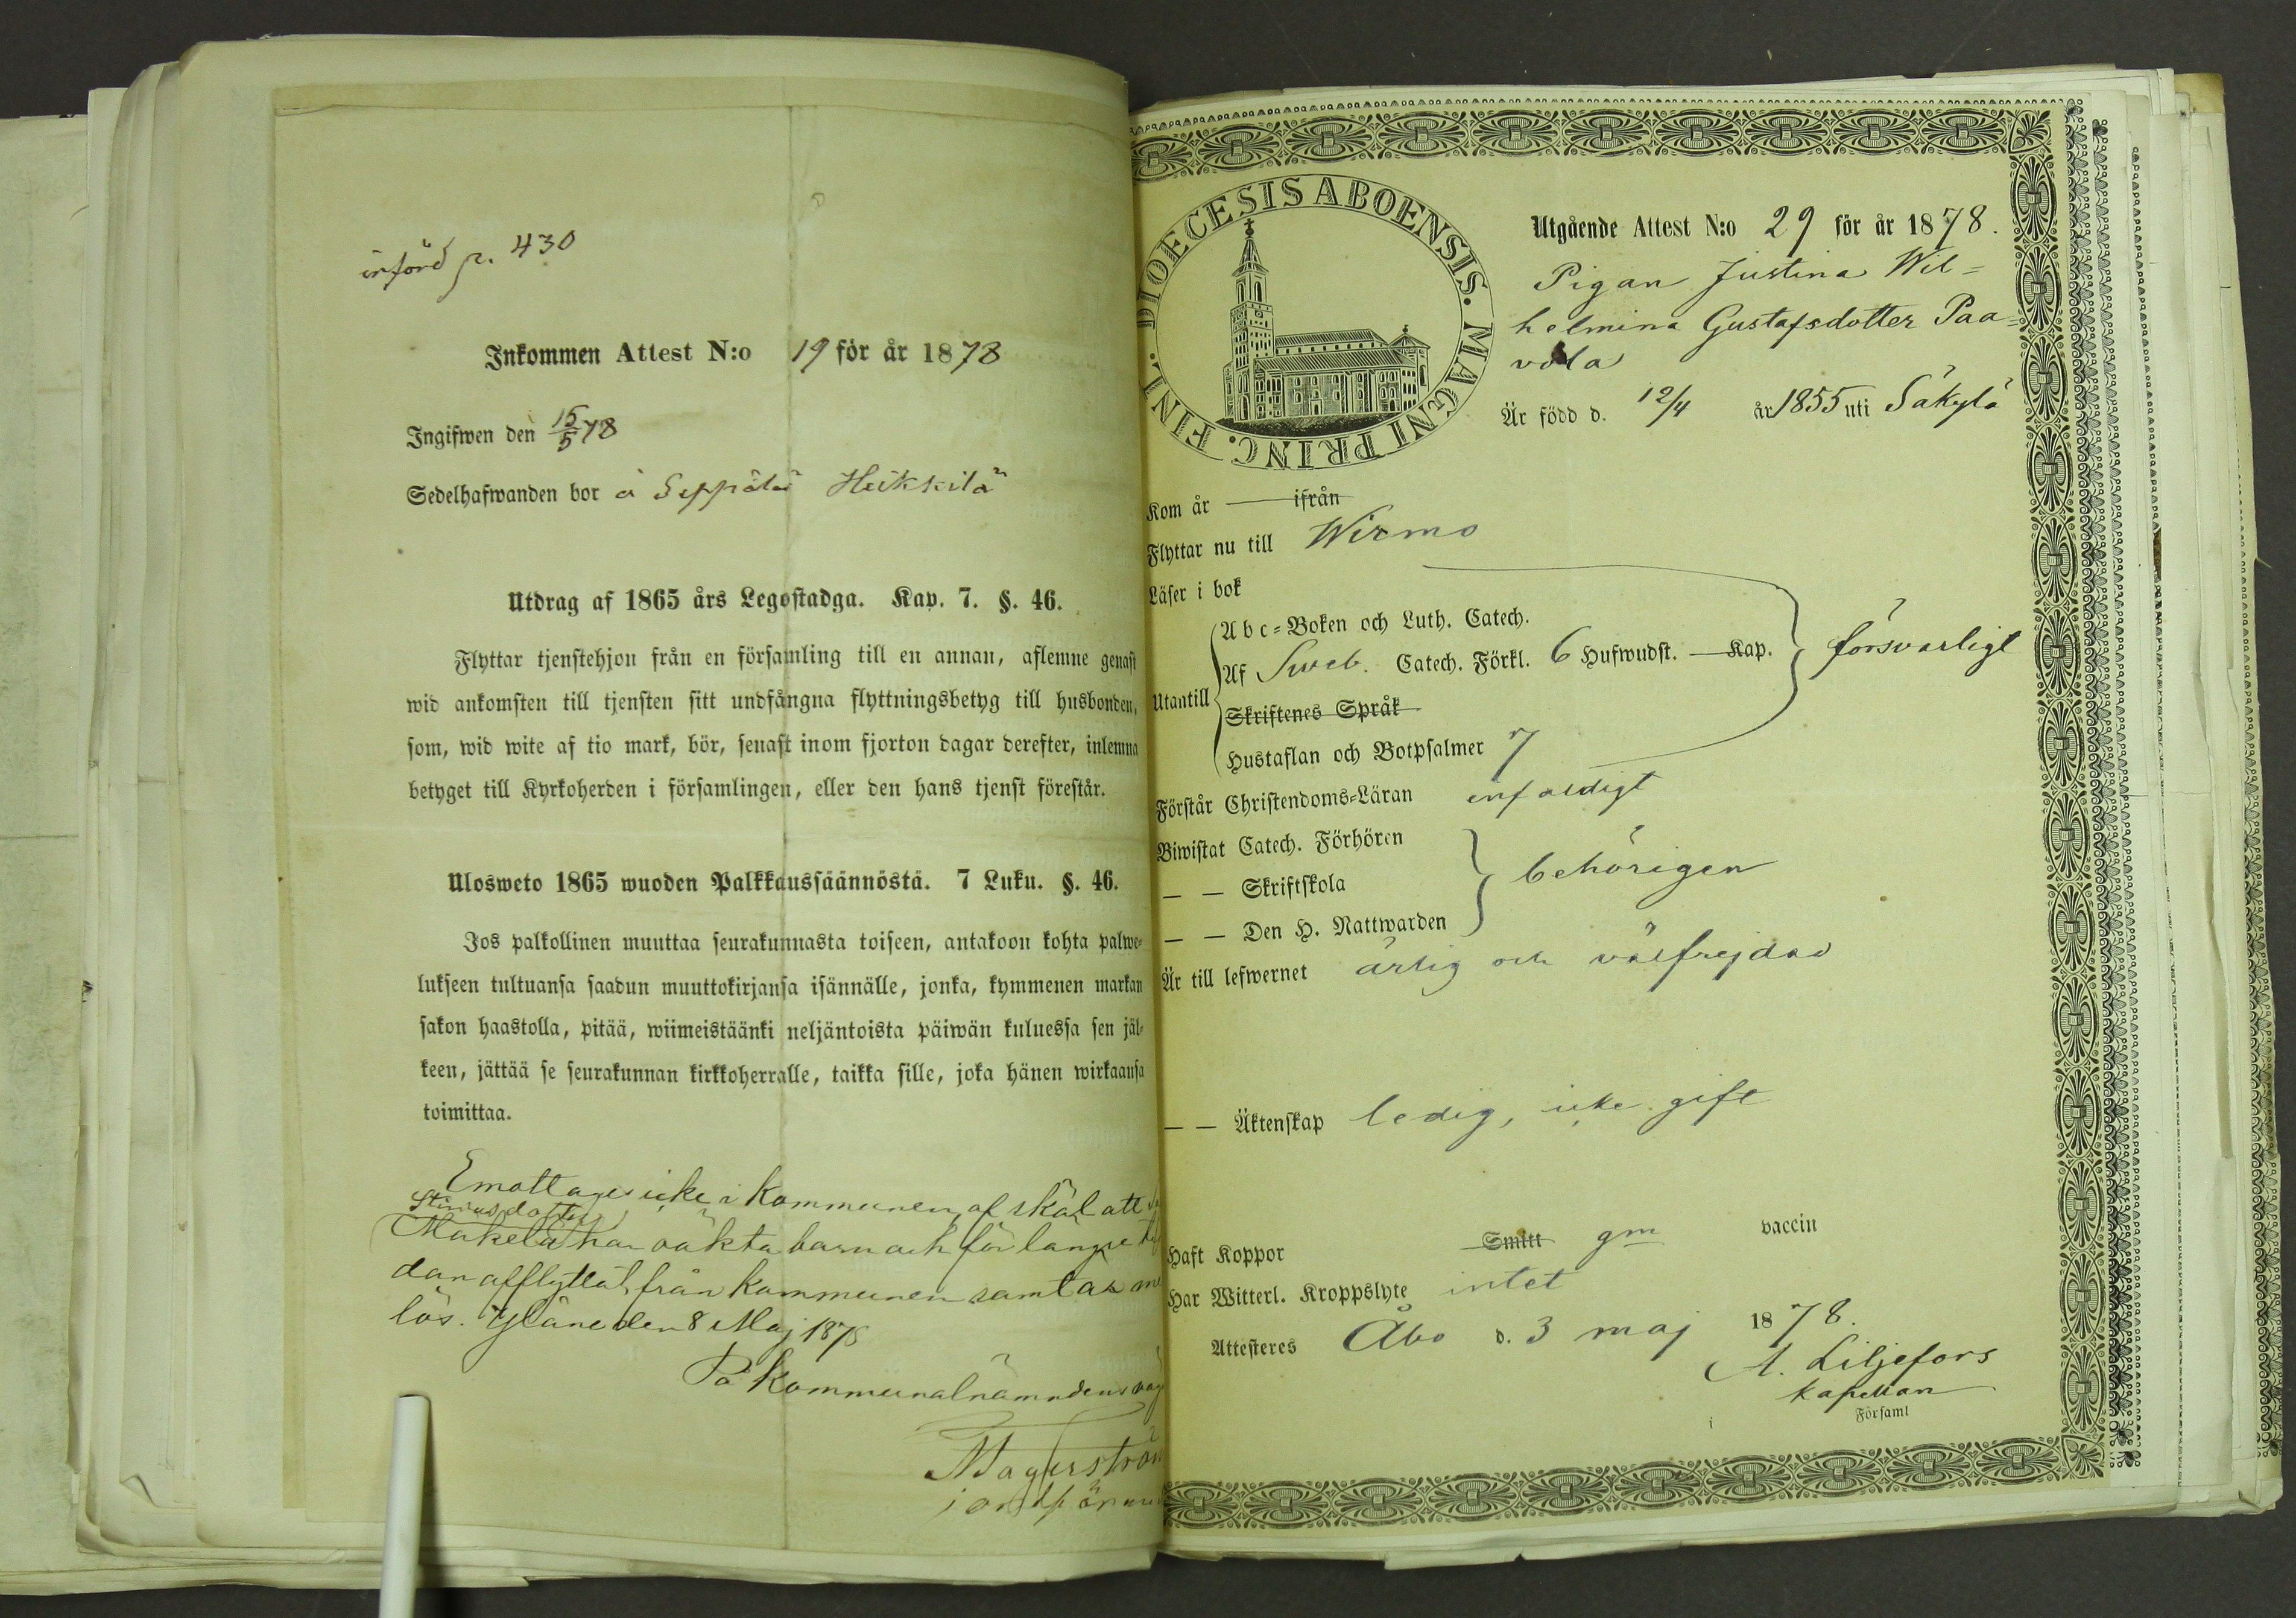 införd p. 430
Inkommen Attest N:o 19 för år 1878
Ingifwen den 15/5 78
Sedelhafwanden bor å Seppälä Heikkilä
Utdrag af 1865 års Legostadga. Kap. 7. §. 46.
Flyttar tjenstehjon från en församling till en annan, aflemne genast
wid ankomsten till tjensten sitt undfångna flyttningsbetyg till husbonden,
som, wid wite af tio mark, bör, senast inom fjorton dagar derefter, inlemna
betyget till Kyrkoherden i församlingen, eller den hans tjenst förestår.
Ulosweto 1865 wuoden Palkkaussäännöstä. 7 Luku. §. 46.
Jos palkollinen muuttaa seurakunnasta toiseen, antakoon kohta palwe-
lukseen tultuansa saadun muuttokirjansa isännälle, jonka, kymmenen markan
sakon haastolla, pitää, wiimeistäänki neljäntoista päiwän kuluessa sen jäl-
keen, jättää se seurakunnan kirkkoherralle, taikka sille, joka hänen wirkaansa
toimittaa.
Emottages icke i Kommunen, af skäl att
Mäkelä har oäkta barn och för längre
dan afflyttat från kommunen samt
lös. Yläne den 8 Maj 1878
På Kommunalnämndens
DIOECESIS ABOENSIS. MAGNI PRINC. FINL.
Utgående Attest N:o 29 för år 1878.
Pigan Justina Wil=
helmina Gustafsdotter Paa=
vola
Är född d. 12/4 år 1855 uti Säkylä
Kom år — ifrån
Flyttar nu till Wirmo
Läser i bok
Utantill
Abc=Boken och Luth. Catech.
Af Sweb. Catech. Förkl. 6 Hufwudst. — Kap. försvarligt
Skriftenes Språk
Hustaflan och Botpsalmer 7
Förstår Christendoms=Läran enfaldigt
Biwistat Catech. Förhören
— — Skriftskola behörigen
— — Den H. Nattwarden
Är till lefwernet ärlig och välfrejdad
— — Äktenskap ledig, icke gift
Haft Koppor Smitt gm vaccin
Har Witterl. Kroppslyte intet
Attesteres Åbo d. 3 maj 1878.
A. Liljefors
kapellan
i Församl